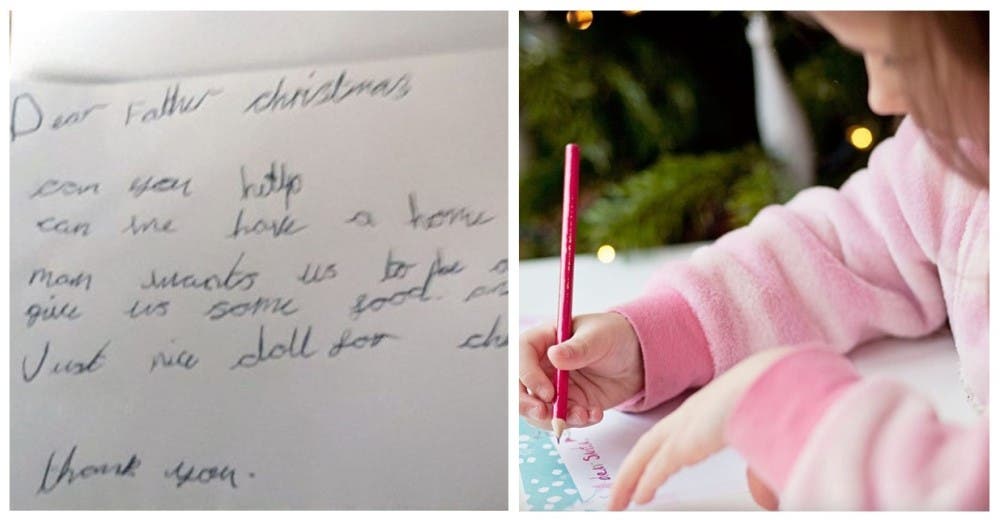 Dear Father christmas
can you help
can we have a home
mam wants us to be
give us some food.
Just nice doll for
thank you.